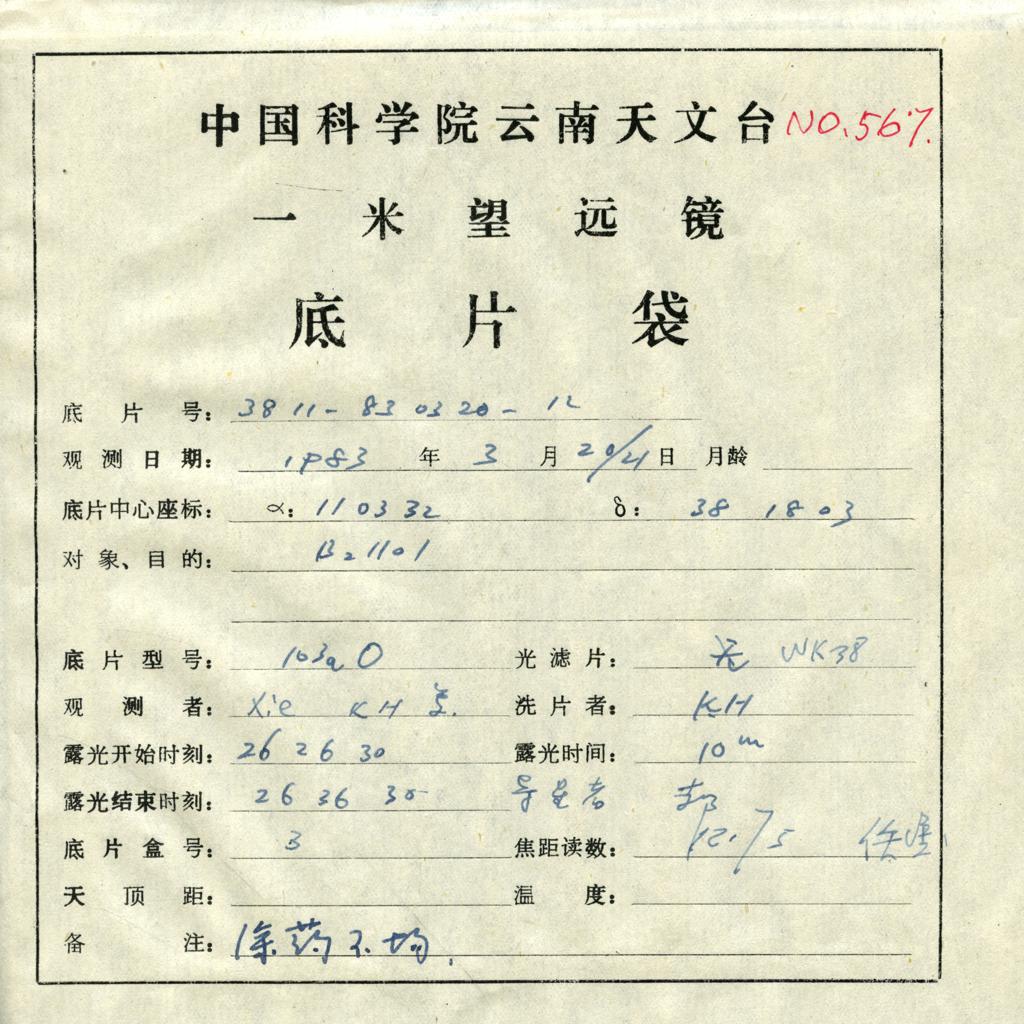 中国科学院云南天文台 NO.567.
一米望远镜
底片袋
底片号: 3811-830320-12
观测日期: 1983年3月20/21日 月龄
底片中心座标: α: 11 03 32 δ: 38 18 03
对象、目的: B21101
底片型号: 103aO 光滤片: 无 WK38
观测者: Xie KH 洗片者: KH
露光开始时刻: 26 26 30 露光时间: 10m
露光结束时刻: 26 36 30 导星者
底片盒号: 3 焦距读数: 12.75
天顶距: 温度:
备注: 涂药不均.